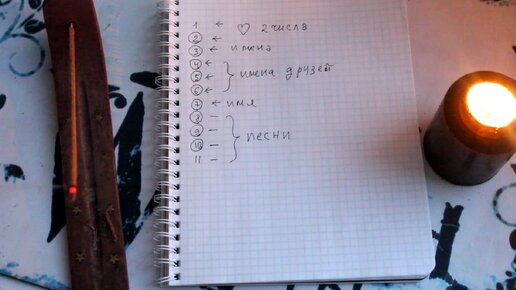 1 ← ♡ 2 числа
2 ←
3 ← имена
4 ←
5 ← } имена друзей
6 ←
7 ← имя
8 –
9 – } песни
10 –
11 –